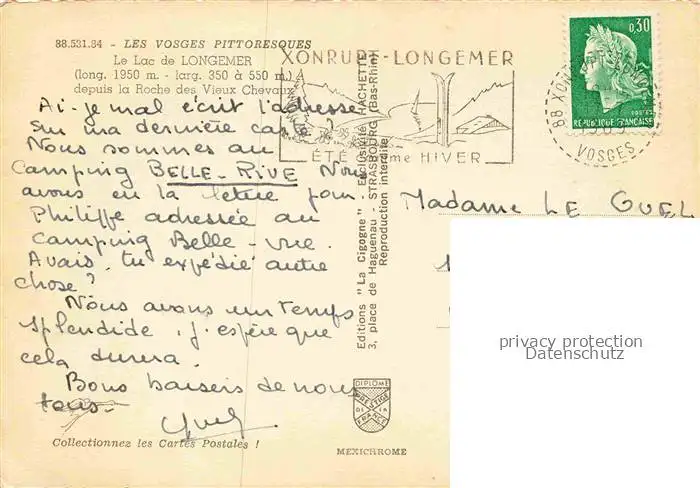 88.531.84 - LES VOSGES PITTORESQUES
Le Lac de LONGEMER
(long. 1950 m. - larg. 350 à 550 m.)
depuis la Roche des Vieux Chevaux
XONRUPT-LONGEMER
ÉTÉ comme HIVER
0,30
REPUBLIQUE FRANÇAISE
88 XONRUPT
VOSGES
Ai-je mal écrit l'adresse
sur ma dernière carte ?
Nous sommes au
Camping BELLE-RIVE Nous
avons eu la lettre pour
Philippe adressée au
camping Belle-vue.
Avais-tu expédié autre
chose ?
Nous avons un temps
splendide, j'espère que
cela durera.
Bons baisers de nous
tous.
Editions "La Cigogne" - EXCLUSIVITÉ HACHETTE
3, place de Haguenau - STRASBOURG (Bas-Rhin)
Reproduction interdite
Madame LE GUEL
privacy protection
Datenschutz
DIPLOME
PRESTIGE
DE LA
FRANCE
MEXICHROME
Collectionnez les Cartes Postales !